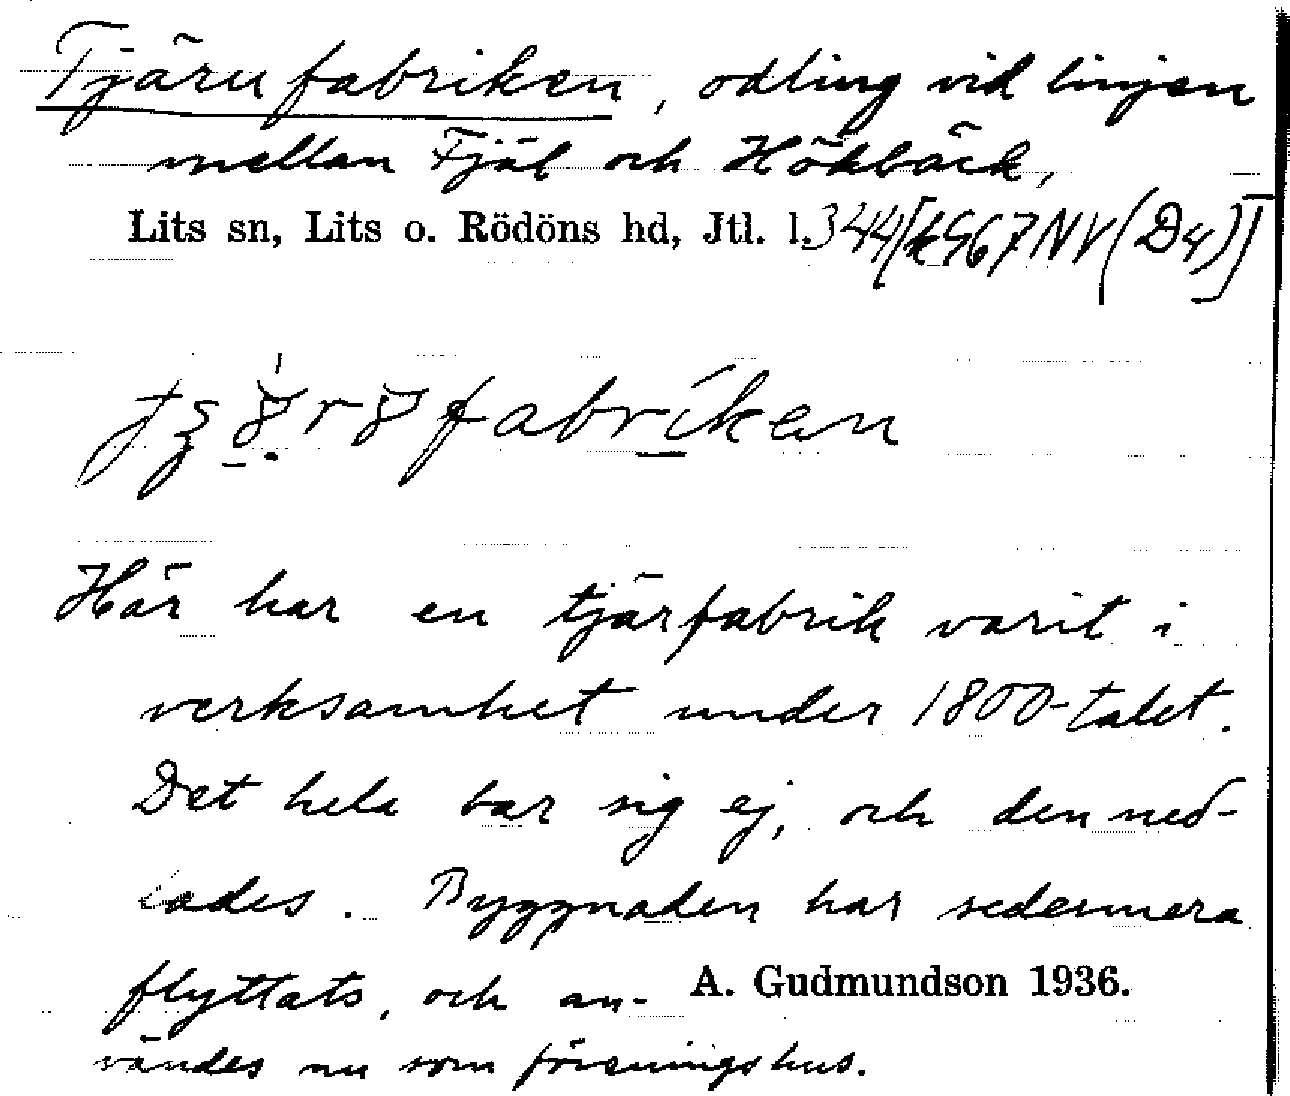 Tjärufabriken, odling vid linjen
mellan Fjäl och Hökbäck,
Lits sn, Lits o. Rödöns hd, Jtl. l. 344
fabriken
Här har en tjärfabrik varit i
verksamhet under 1800-talet.
Det hela bar sig ej, och den ned-
lades. Byggnaden har sedermera
flyttats, och an- A. Gudmundson 1936.
vändes nu som föreningshus.